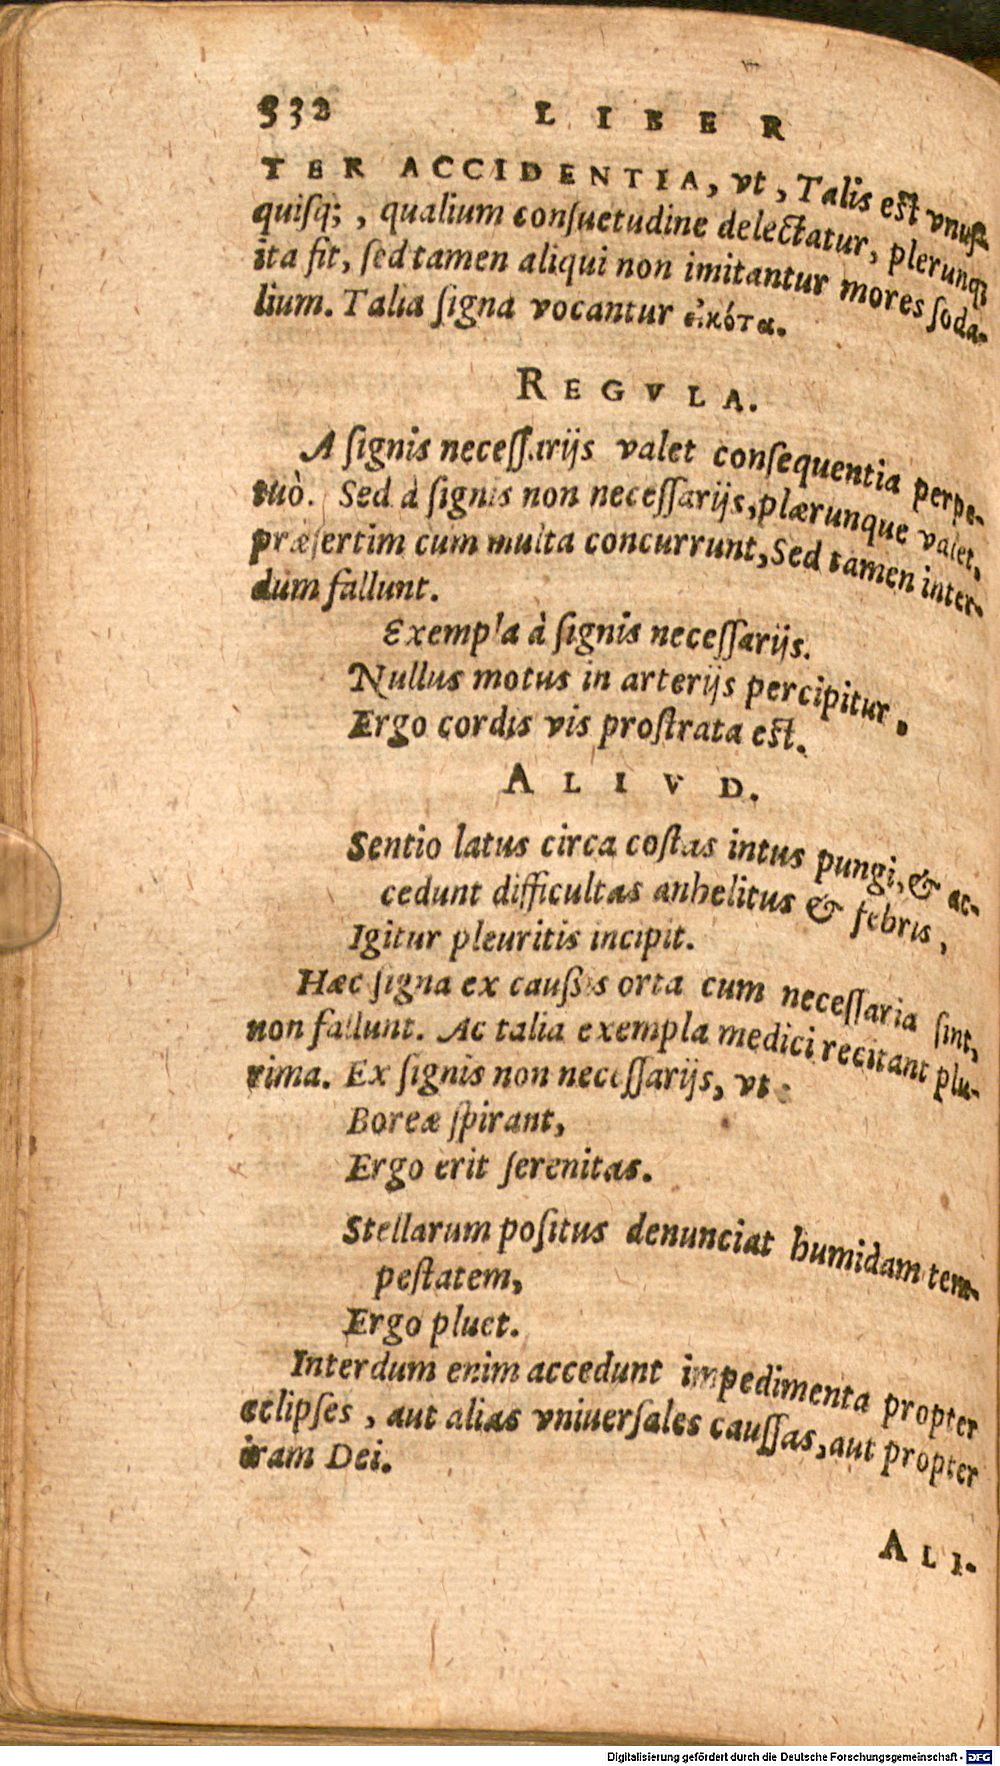 332 LIBER
TER ACCIDENTIA, vt, Talis est vnus-
quisq;, qualium consuetudine delectatur, plerunq;
ita fit, sed tamen aliqui non imitantur mores soda-
lium. Talia signa vocantur εἰκότα.
REGVLA.
A signis necessarijs valet consequentia perpe-
tuò. Sed à signis non necessarijs, plærunque valet,
præsertim cum multa concurrunt, Sed tamen inter-
dum fallunt.
Exempla à signis necessarijs.
Nullus motus in arterijs percipitur,
Ergo cordis vis prostrata est.
ALIVD.
Sentio latus circa costas intus pungi, & ac-
cedunt difficultas anhelitus & febris,
Igitur pleuritis incipit.
Hæc signa ex caußis orta cum necessaria sint,
non fallunt. Ac talia exempla medici recitant plu-
rima. Ex signis non necessarijs, vt:
Boreæ spirant,
Ergo erit serenitas.
Stellarum positus denunciat humidam tem-
pestatem,
Ergo pluet.
Interdum enim accedunt impedimenta propter
eclipses, aut alias vniuersales caussas, aut propter
iram Dei.
ALI-
Digitalisierung gefördert durch die Deutsche Forschungsgemeinschaft - DFG